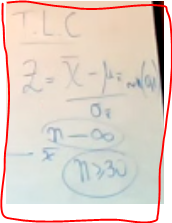 T.L.C
Z = x̄ - μx̄ ~ N(0,
σx̄
n → ∞
x̄
n ≥ 30